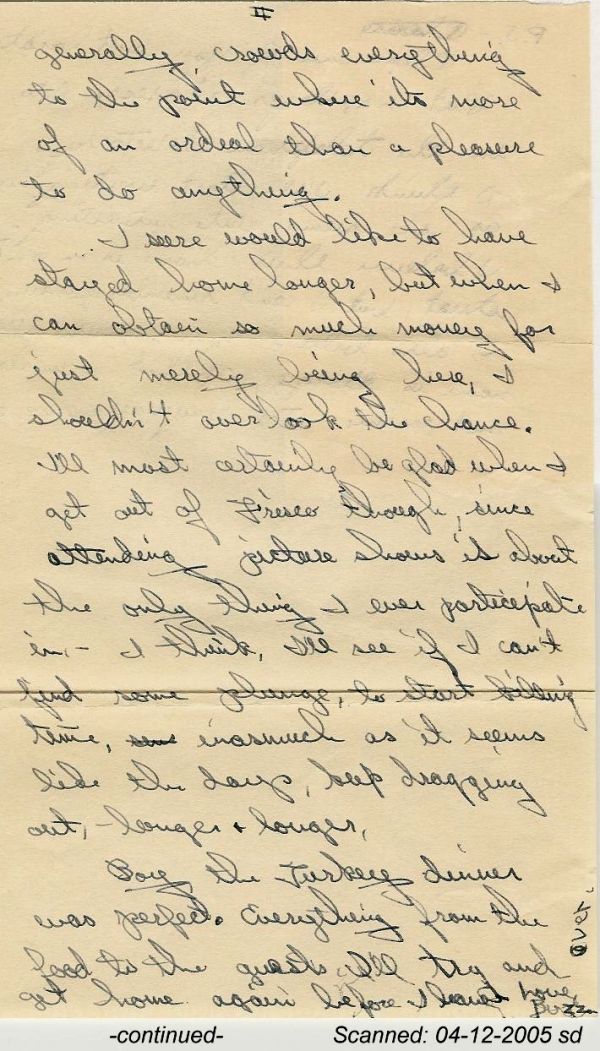 II
generally, crowds everything
to the point where its more
of an ordeal than a pleasure
to do anything.
I sure would like to have
stayed home longer, but when I
can obtain so much money for
just merely being here, I
shouldn't overlook the chance.
I'll most certainly be glad when I
get out of Frisco though, since
attending picture shows is about
the only thing I ever participate
in, - I think, I'll see if I can't
find some plunge, to start killing
time, inasmuch as it seems
like the days, keep dragging
out, - longer & longer,
Boy, the Turkey dinner
was perfect. Everything from the
food to the guests. I'll try and
get home again before I leave Love,
Buzz
over.
-continued- Scanned: 04-12-2005 sd